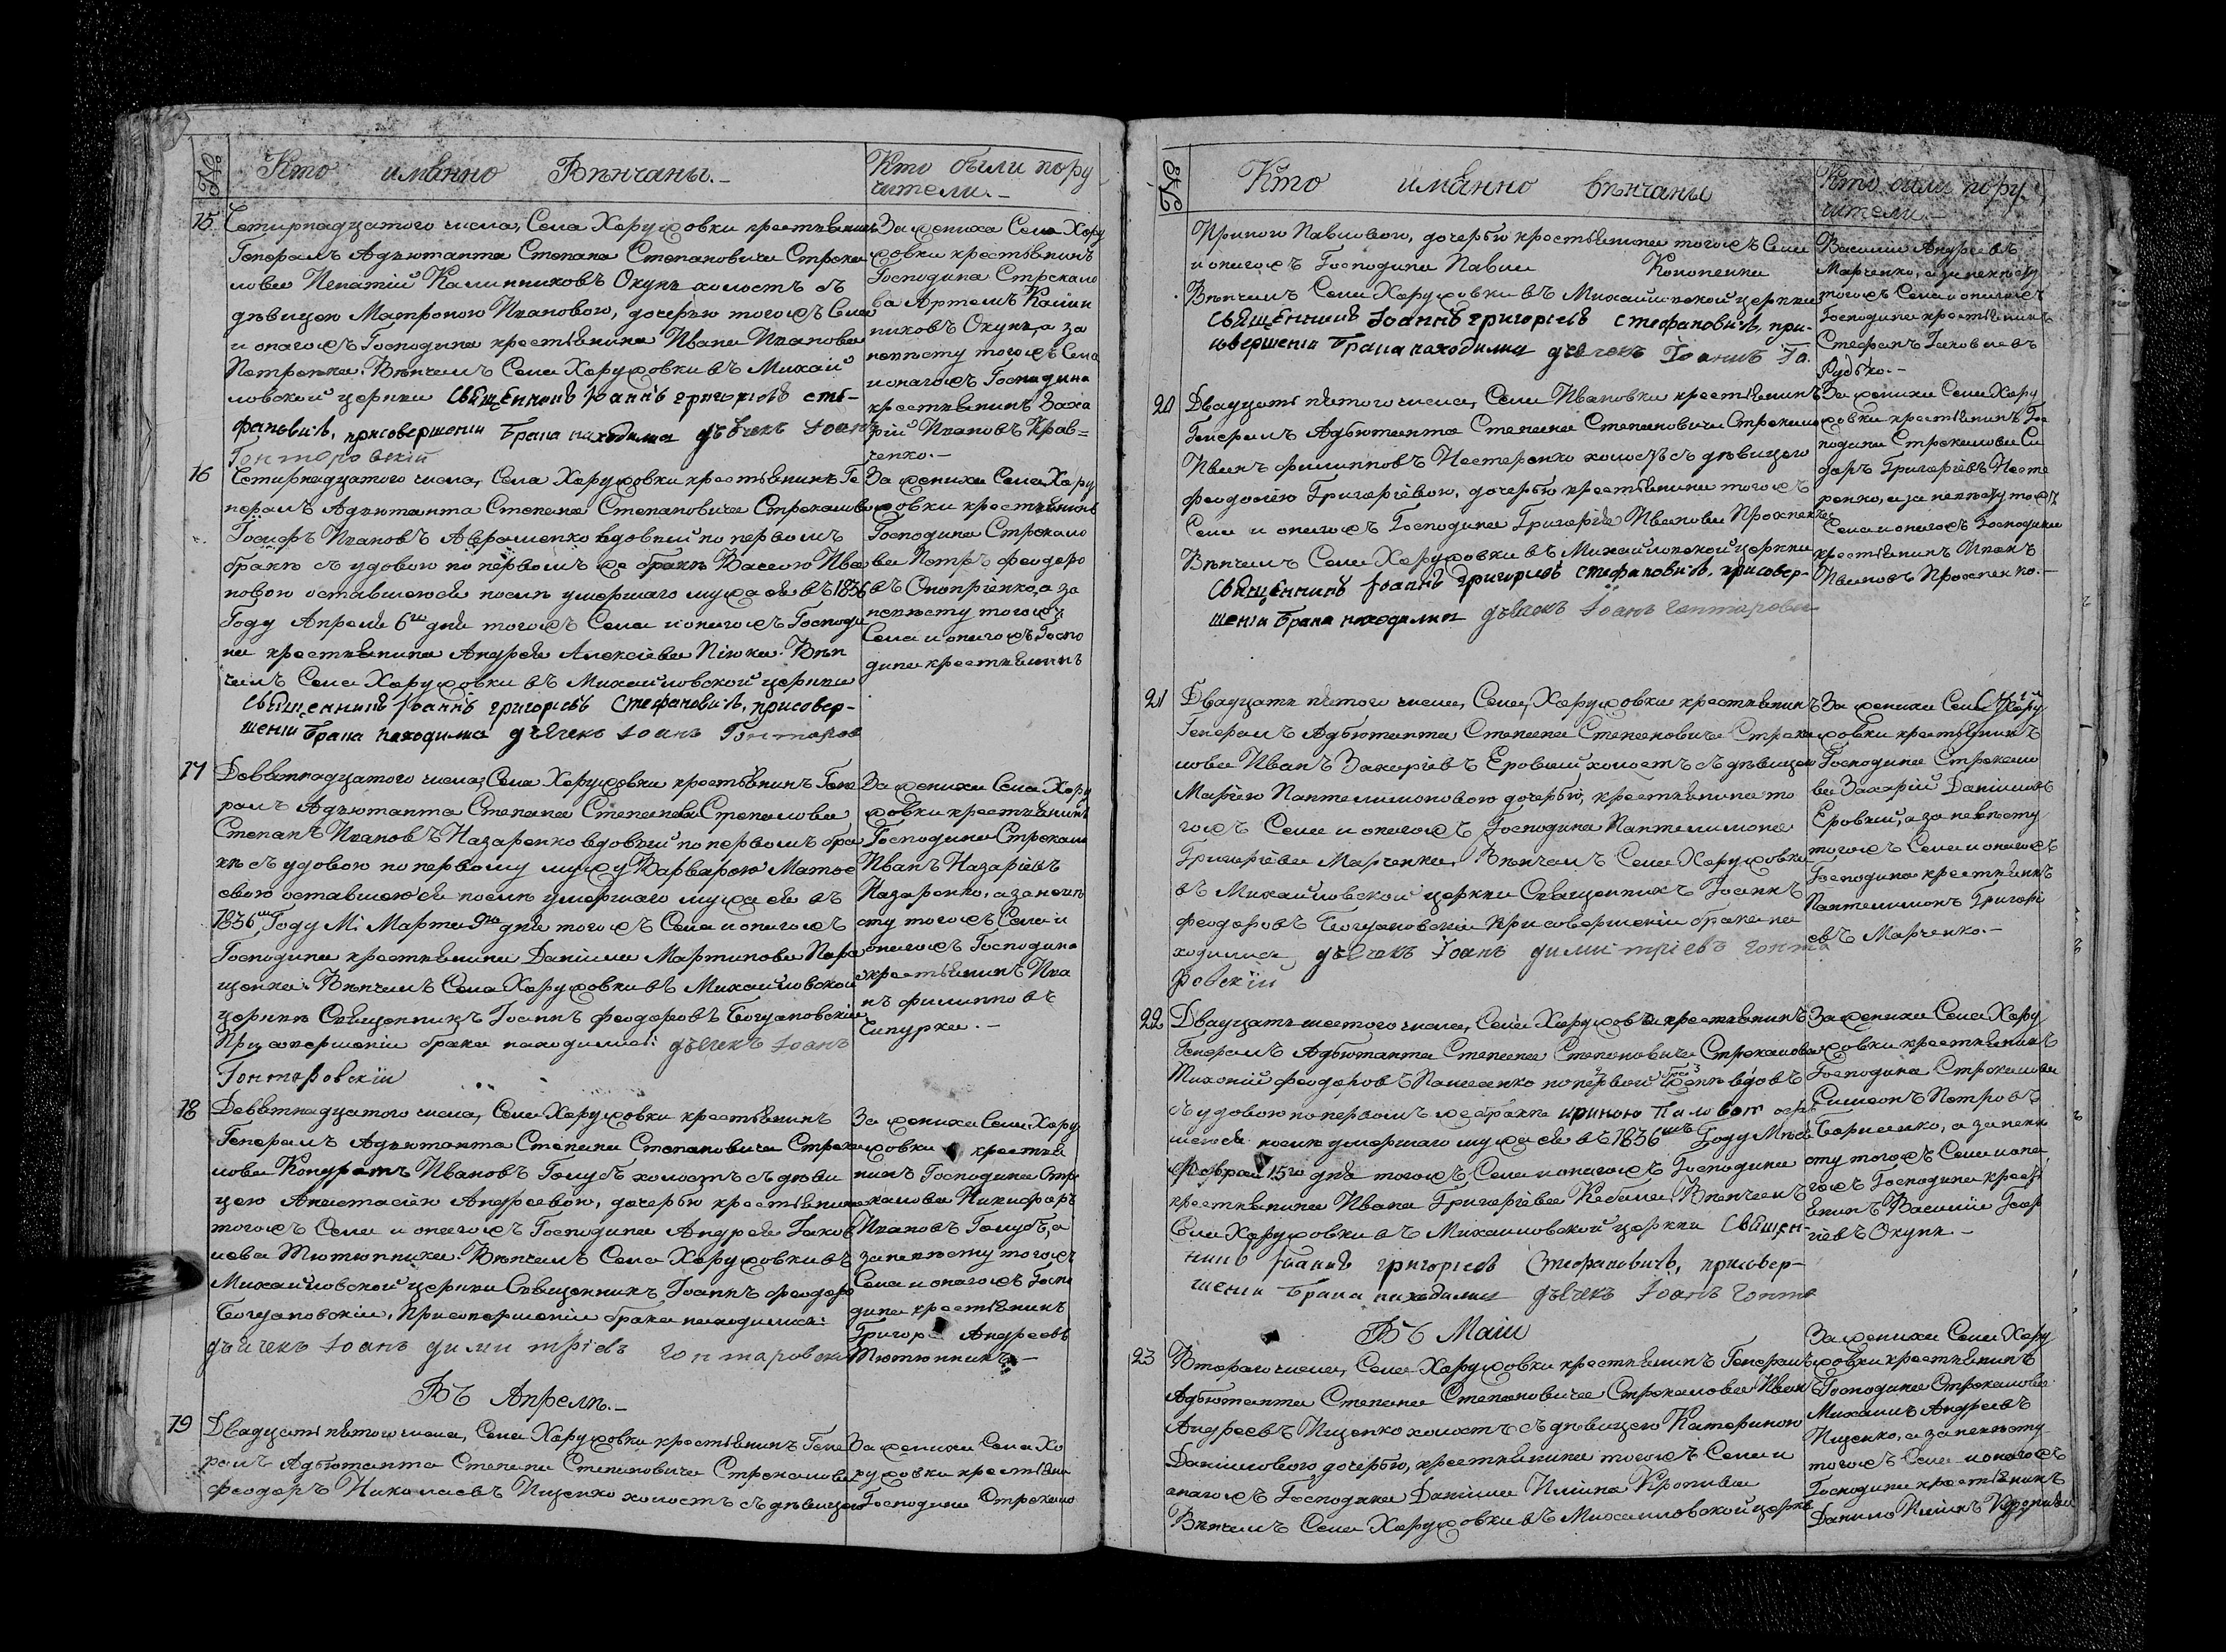 №
Кто имѣнно Вѣнчаны.-
Кто были пору
чители.-
15
Четирнадцатого числа, Села Харуховки крестьянинъ
Генералъ Адъютанта Степана Степановича Стрека
лова Игнатій Калинниковъ Окунь холостъ съ
дѣвицею Матроною Ивановою, дочерью тогожъ Села
и онагожъ Господина крестьянина Ивана Иванова
Петренка. Вѣнчалъ Села Харуховки въ Михай
ловской церкви Священникъ Іоаннъ григоріевъ сте-
фановичъ, присовершеніи брака находился дьячекъ Іоанъ
Гонторовскій
За жениха Села Хару
ховки крестьянинъ
Господина Стрекало
ва Артемъ Калин
никовъ Окунь, а за
невѣсту тогожъ Села
и онагожъ Господина
крестьянинъ Заха
рій Ивановъ Крав=
ченко.-
16
Четирнадцатого числа, Села Харуховки крестьянинъ Ге
нералъ Адъютанта Степана Степановича Стрекалова
Іосифъ Ивановъ Авраменко вдовий по первомъ
бракѣ съ удовою по первомъ же бракѣ Вассою Ива
новою оставшеюся послѣ умершаго мужа ея въ 1836
Году Апреля 6го дня тогожъ Села и онагожъ Господи
на крестьянина Андрея Алексіева Пѣвка. Вѣн
чалъ Села Харуховки въ Михайловской церкви
Священникъ Іоаннъ григоріевъ Стефановичъ, присовер-
шеніи брака находился дьячекъ Іоанъ Гонторов
За жениха Села Хару
ховки крестьянинъ
Господина Стрекало
ва Петръ Феодоро
въ Оноприенко, а за
невѣсту тогожъ
Села и онагожъ Госпо
дина крестьянинъ
17
Девятнадцатого числа, Села Харуховки крестьянинъ Гене
ралъ Адъютанта Степана Степанова Стрекалова
Степанъ Ивановъ Назаренко вдовий по первомъ бра
кѣ съ удовою по первому мужу Варварою Матое
евою оставшеюся послѣ умершаго мужа ея въ
1836мъ Году Мі Марта 9го дня тогожъ Села и онагожъ
Господина крестьянина Даніила Мартинова Пара
щенка. Вѣнчалъ Села Харуховки въ Михайловской
церкви Священникъ Іоаннъ Феодоровъ Богдановскій
При совершеніи брака находился: дьячекъ Іоанъ
Гонторовскій
За жениха Села Хару
ховки крестьянинъ
Господина Стрекалов
Иванъ Назаріевъ
Назаренко, а за невѣ
сту тогожъ Села и
онагожъ Господина
крестьянинъ Ива
нъ Филиппо въ
Чипурка.-
18
Девятнадцатого числа, Села Харуховки крестьянинъ
Генералъ Адъютанта Степана Степановича Стрека
лова Кондратъ Ивановъ Голубъ холостъ съ дѣви
цею Анастасіею Андреевою, дочерью крестьянина
тогожъ Села и онагожъ Господина Андрея Іаков
лева Тютюнника. Вѣнчалъ Села Харуховки въ
Михайловской церкви Священникъ Іоаннъ Феодоро
Богдановскій, Присовершеніи брака находился:
дьячекъ Іоанъ дими тріевъ гонтаровски
За жениха Села Хару
ховки крестья
нинъ Господина Стре
калова Никифоръ
Ивановъ Голубъ, а
за невѣсту тогожъ
Села и онагожъ Госпо
дина крестьянинъ
Григор Андреевъ
Тютюнникъ.-
Въ Апрелѣ.-
19
Двадцать пятого числа, Села Харуховки крестьянинъ Гене
ралъ Адъютанта Степана Степановича Стрекалова
Феодоръ Николаевъ Ищенко холостъ съ дѣвицею
За жениха Села Ха
руховки крестьяни
Господина Стрекало
№
Кто имѣнно вѣнчаны
Кто были пору
чители.-
Ириною Павловою, дочерью крестьянина тогожъ Села
и онагожъ Господина Павла Конопенка
Вѣнчалъ Села Харуховки въ Михайловской церкви
Священникъ Іоаннъ григоріевъ стефановичъ, при-
совершеніи брака находился дьячекъ Іоаннъ Го.
Василій Андреевъ
Марченко, а за невѣсту
тогожъ Села и онагожъ
Господина крестьянинъ
Стефанъ Іаковлевъ
Рудько.-
20
Двадцать пятого числа, Села Ивановки крестьянинъ
Генералъ Адъютанта Степана Степановича Стрекало
Иванъ Филипповъ Нестеренко холостъ съ дѣвицею
Феодосіею Григоріевою, дочерью крестьянина тогожъ
Села и онагожъ Господина Григорія Иванова Прохненка
Вѣнчалъ Села Харуховки въ Михайловской церкви
Священникъ Іоаннъ григоріевъ стефановичъ, присовер-
шеніи брака находился дьячекъ Іоанъ гонтарови
За жениха Села Хару
ховки крестьянинъ Гос
подина Стрекалова Си
доръ Григоріевъ Несте
ренко, а за невѣсту тогожъ
Села и онагожъ Господина
крестьянинъ Иванъ
Ивановъ Прохненко.-
21
Двадцать пятого числа, Села Харуховки крестьянинъ
Генералъ Адъютанта Степана Степановича Стрека
лова Иванъ Захаріевъ Еровий холостъ съ дѣвицею
Маріею Пантелимоновою дочерью, крестьянина то
гожъ Села и онагожъ Господина Пантелимона
Григоріева Марченка, Вѣнчалъ Села Харуховки
въ Михайловской церкви Священникъ Іоаннъ
Феодоровъ Богдановскій присовершеніи брака на
ходился, дьячекъ Іоанъ димитріевъ гонта
ровскій
За жениха Села Хару
ховки крестьянинъ
Господина Стрекало
ва Захарій Даніиловъ
Еровий, а за невѣсту
тогожъ Села и онагожъ
Господина крестьянинъ
Пантелимонъ Григорі
евъ Марченко.-
22
Двадцать шестого числа, Села Харуховки крестьянинъ
Генералъ Адъютанта Степана Степановича Стрекалова
Тихоній Феодоровъ Пащенко по первомъ бракѣ вдовъ
съ удовою по первомъ же бракѣ ириною Павловою остав
шеюся послѣ умершаго мужа ея въ 1836мъ Году Мца
Февраля 15го дня тогожъ Села и онагожъ Господина
крестьянина Ивана Григоріева Кебала. Вѣнчалъ
Села Харуховки въ Михайловской церкви Священ-
никъ Іоаннъ григоріевъ Стефановичъ, присовер-
шеніи брака находился дьячекъ Іоанъ гонта
За жениха Села Хару
ховки крестьянинъ
Господина Стрекалова
Симеонъ Петровъ
Борисенко, а за невѣ
сту тогожъ Села и она
гожъ Господина кресть
янинъ Василій Геор
гіевъ Окунь.-
Въ Маіи
23
Втораго числа, Села Харуховки крестьянинъ Генералъ
Адъютанта Степана Степановича Стрекалова Иванъ
Андреевъ Ищенко холостъ съ дѣвицею Катериною
Даніиловою, дочерью, крестьянина тогожъ Села и
онагожъ Господина Даніила Ильина Кропива
Вѣнчалъ Села Харуховки въ Михайловской церкв
За жениха Села Хару
ховки крестьянинъ
Господина Стрекалова
Михаилъ Андреевъ
Ищенко, а за невѣсту
тогожъ Села и онагожъ
Господина крестьянинъ
Данило Ильинъ Кропива